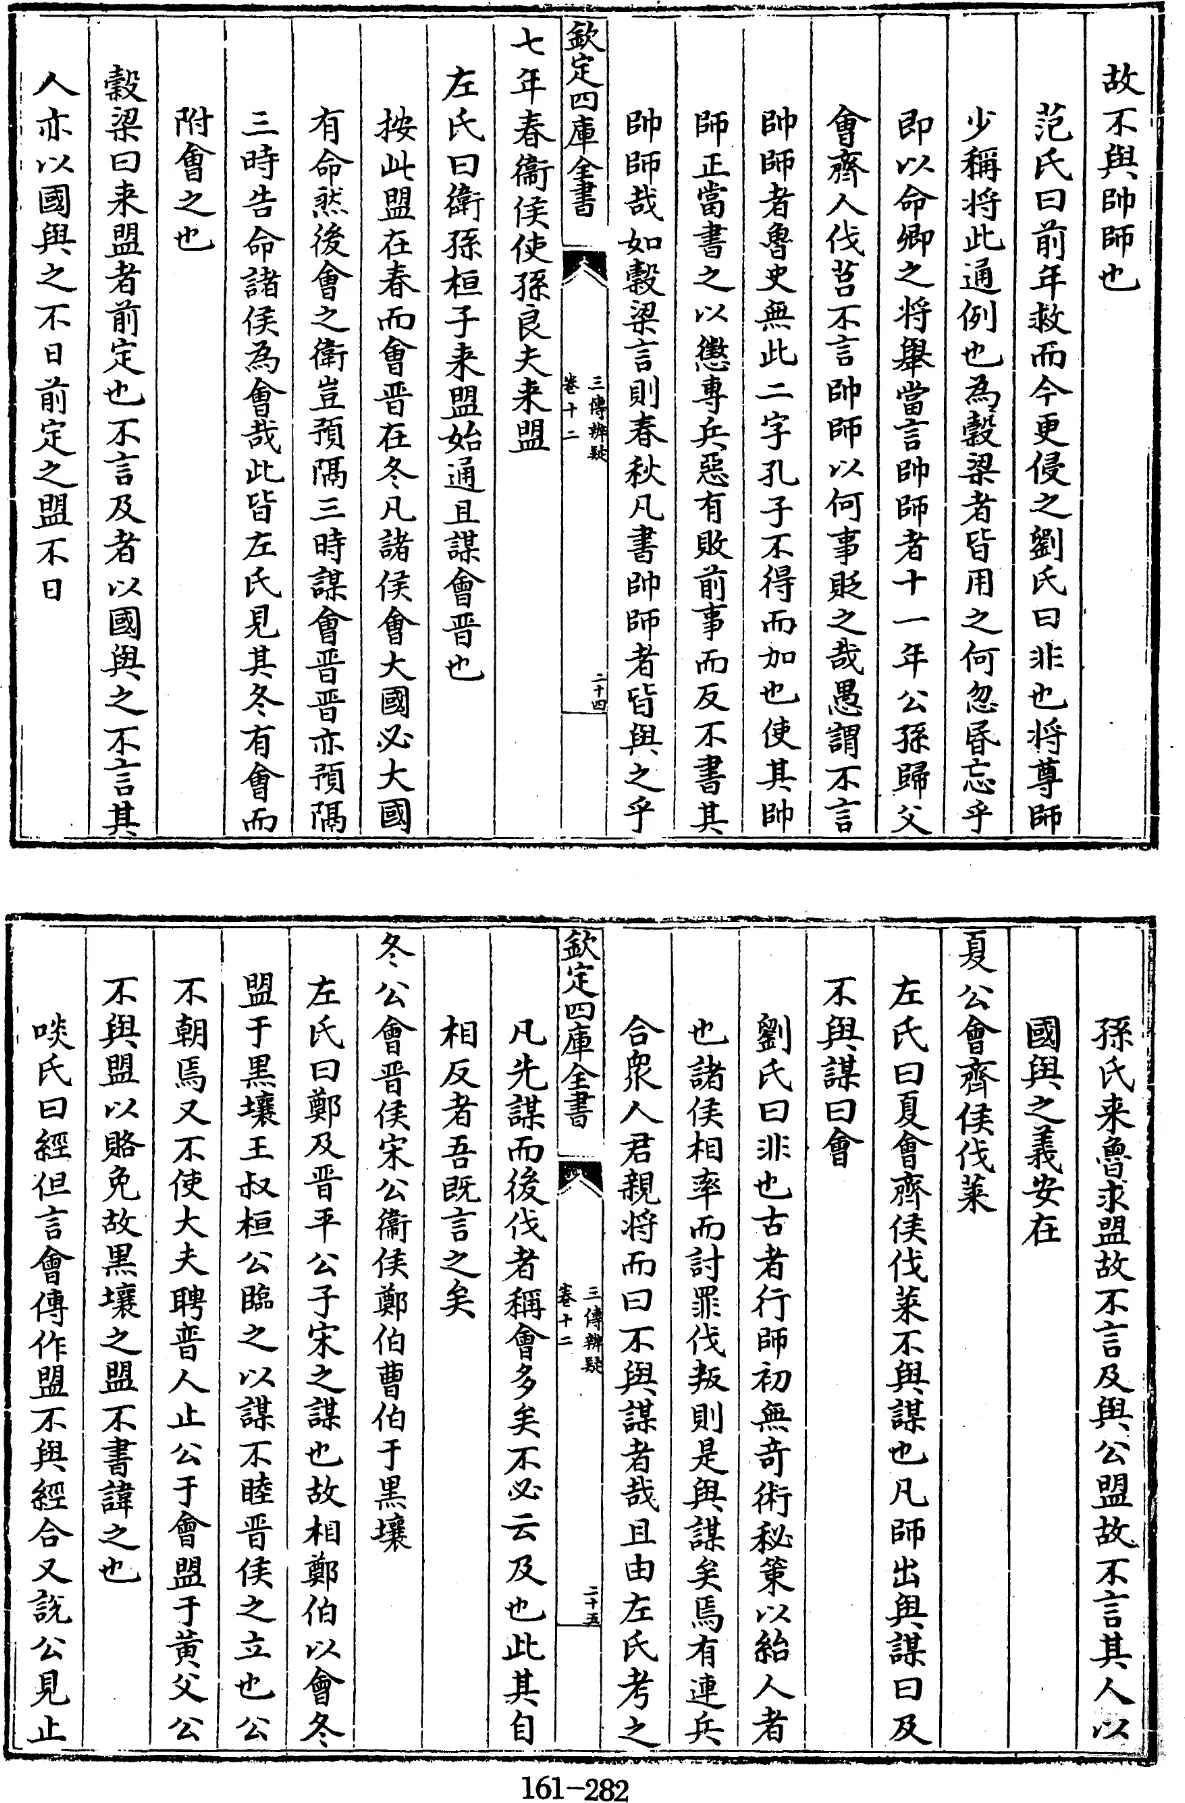 故不與帥師也
范氏曰前年救而今更侵之劉氏曰非也将尊師
少稱将此通例也為穀梁者皆用之何忽昏忘乎
即以命卿之将舉當言帥師者十一年公孫歸父
會齊人伐莒不言帥師以何事貶之哉愚謂不言
帥師者魯史無此二字孔子不得而加也使其帥
師正當書之以懲專兵惡有敗前事而反不書其
帥師哉如穀梁言則春秋凡書帥師者皆與之乎
欽定四庫全書
三傳辨疑
卷十二
二十四
七年春衞侯使孫良夫来盟
左氏曰衛孫桓子来盟始通且謀會晋也
按此盟在春而會晋在冬凡諸侯會大國必大國
有命然後會之衛豈預隔三時謀會晋晋亦預隔
三時告命諸侯為會哉此皆左氏見其冬有會而
附會之也
穀梁曰来盟者前定也不言及者以國與之不言其
人亦以國與之不日前定之盟不日
孫氏来魯求盟故不言及與公盟故不言其人以
國與之義安在
夏公會齊侯伐萊
左氏曰夏會齊侯伐萊不與謀也凡師出與謀曰及
不與謀曰會
劉氏曰非也古者行師初無奇術秘策以紿人者
也諸侯相率而討罪伐叛則是與謀矣焉有連兵
合衆人君親将而曰不與謀者哉且由左氏考之
欽定四庫全書
三傳辨疑
卷十二
二十五
凡先謀而後伐者稱會多矣不必云及也此其自
相反者吾既言之矣
冬公會晋侯宋公衞侯鄭伯曹伯于黑壤
左氏曰鄭及晋平公子宋之謀也故相鄭伯以會冬
盟于黑壤王叔桓公臨之以謀不睦晋侯之立也公
不朝焉又不使大夫聘晋人止公于會盟于黄父公
不與盟以賂免故黒壤之盟不書諱之也
啖氏曰經但言會傳作盟不與經合又説公見止
161-282